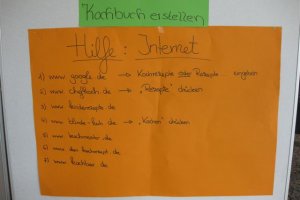 Kochbuch erstellen
Hilfe: Internet
1) www.google.de → Kochrezepte oder Rezepte... eingeben
2) www.chefkoch.de → "Rezepte" drücken
3) www.kinderrezepte.de
4) www.blinde-kuh.de → "Kochen" drücken
5) www.kochmeister.de
6) www.das kochrezept.de
7) www.kochbar.de